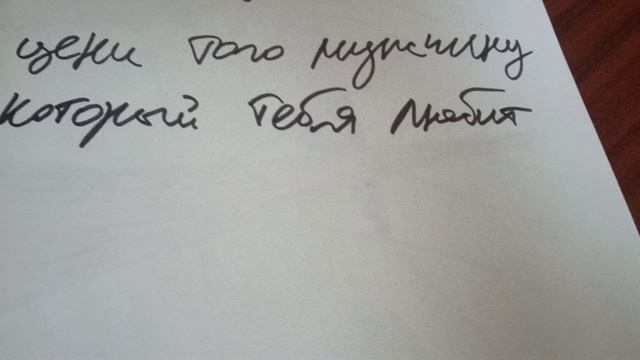 цени того мужчину
который тебя любит